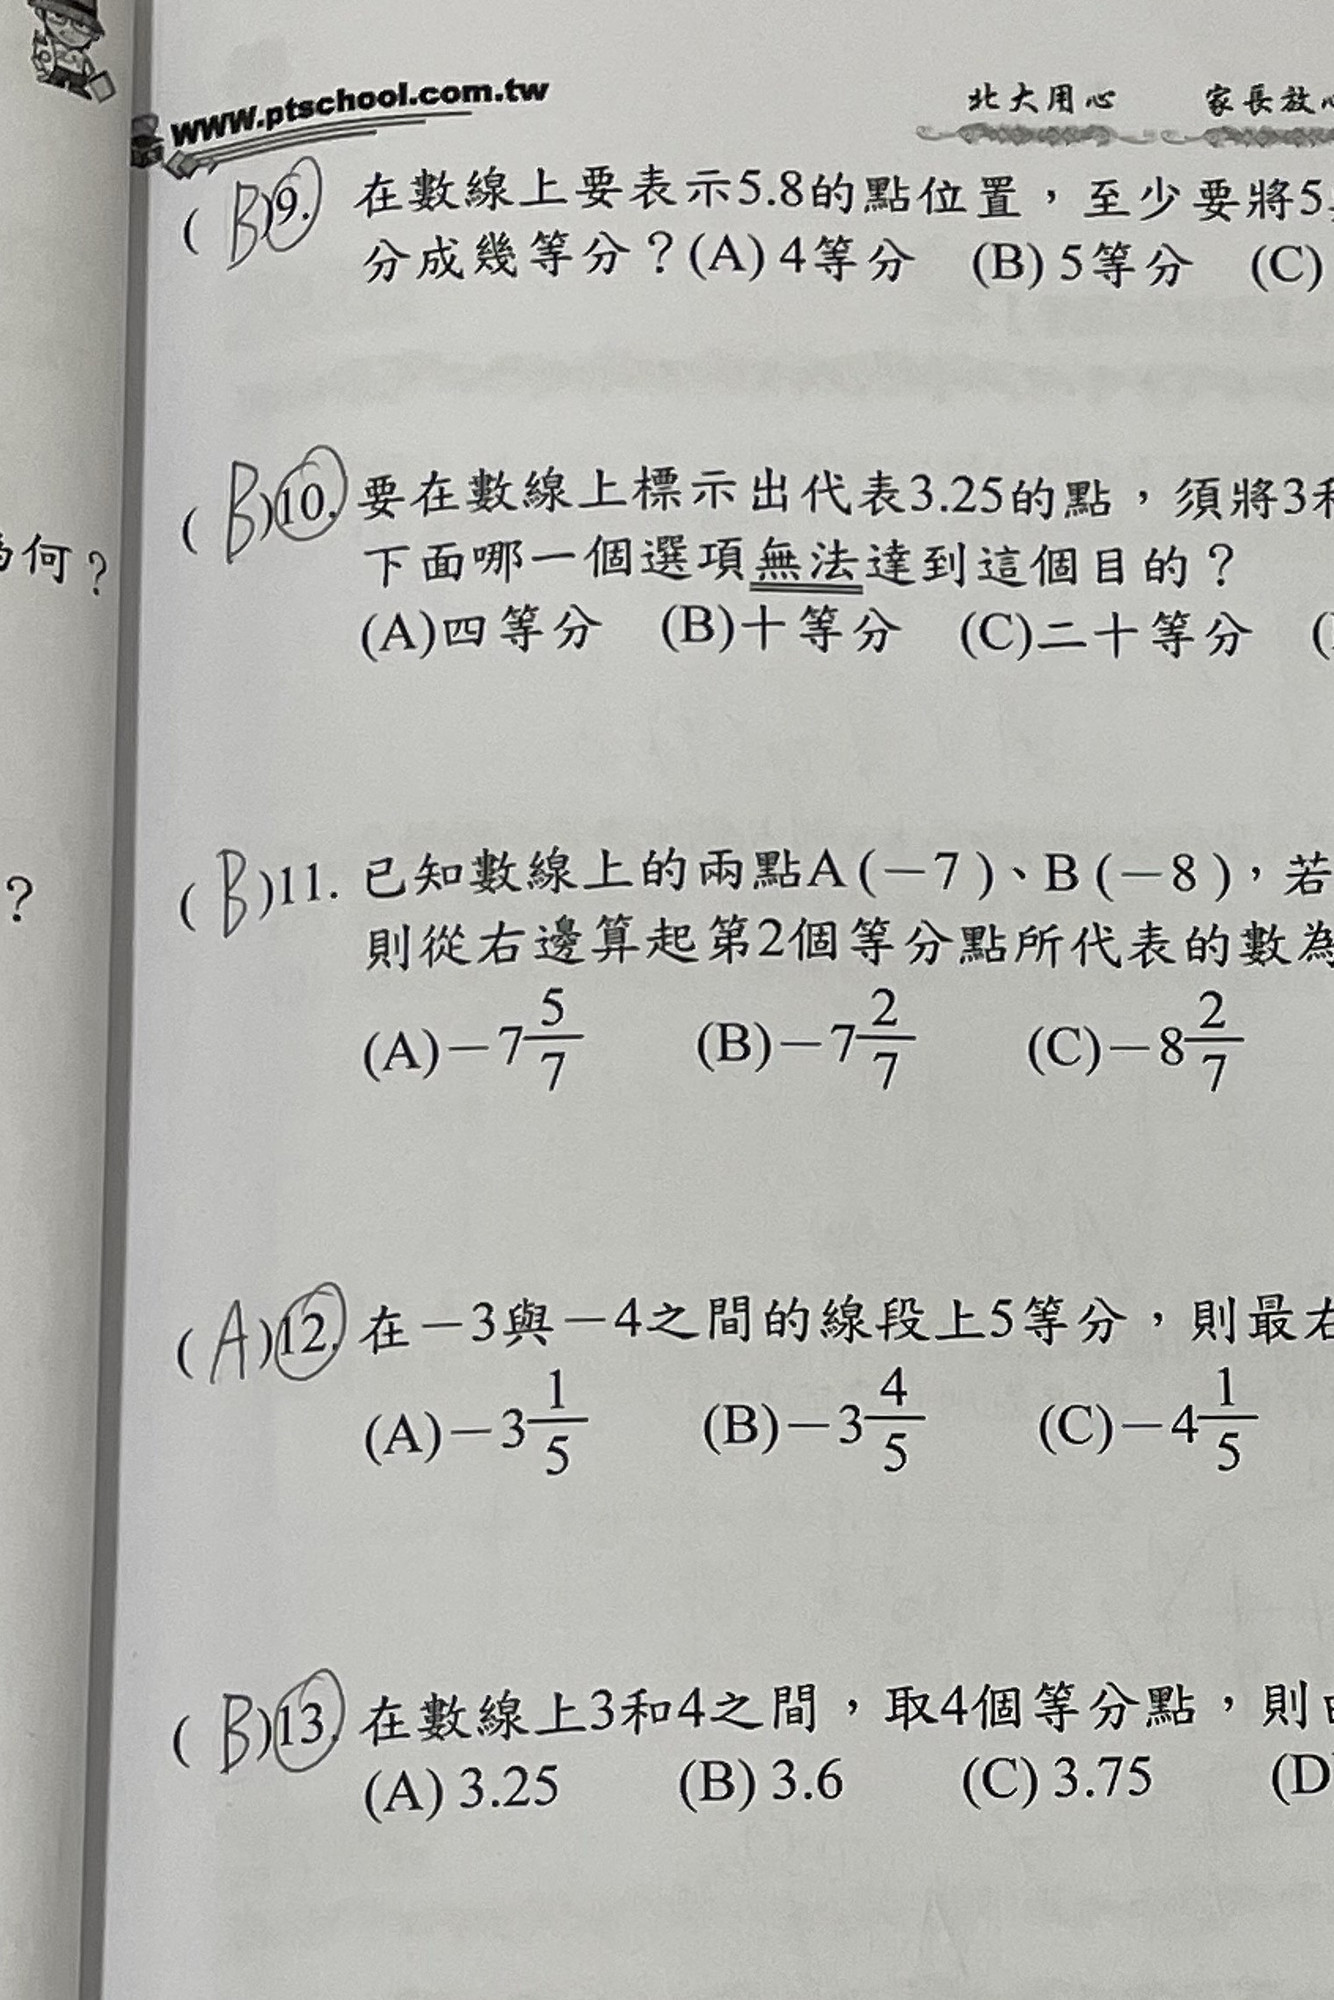 www.ptschool.com.tw
北大用心 家長放心
(B)9. 在數線上要表示5.8的點位置，至少要將5
分成幾等分？(A) 4等分 (B) 5等分 (C)
(B)10. 要在數線上標示出代表3.25的點，須將3和
何？
下面哪一個選項無法達到這個目的？
(A)四等分 (B)十等分 (C)二十等分 (
？
(B)11. 已知數線上的兩點A(－7)、B(－8)，若
則從右邊算起第2個等分點所代表的數為
(A)－7 5/7 (B)－7 2/7 (C)－8 2/7
(A)12. 在－3與－4之間的線段上5等分，則最右
(A)－3 1/5 (B)－3 4/5 (C)－4 1/5
(B)13. 在數線上3和4之間，取4個等分點，則由
(A) 3.25 (B) 3.6 (C) 3.75 (D